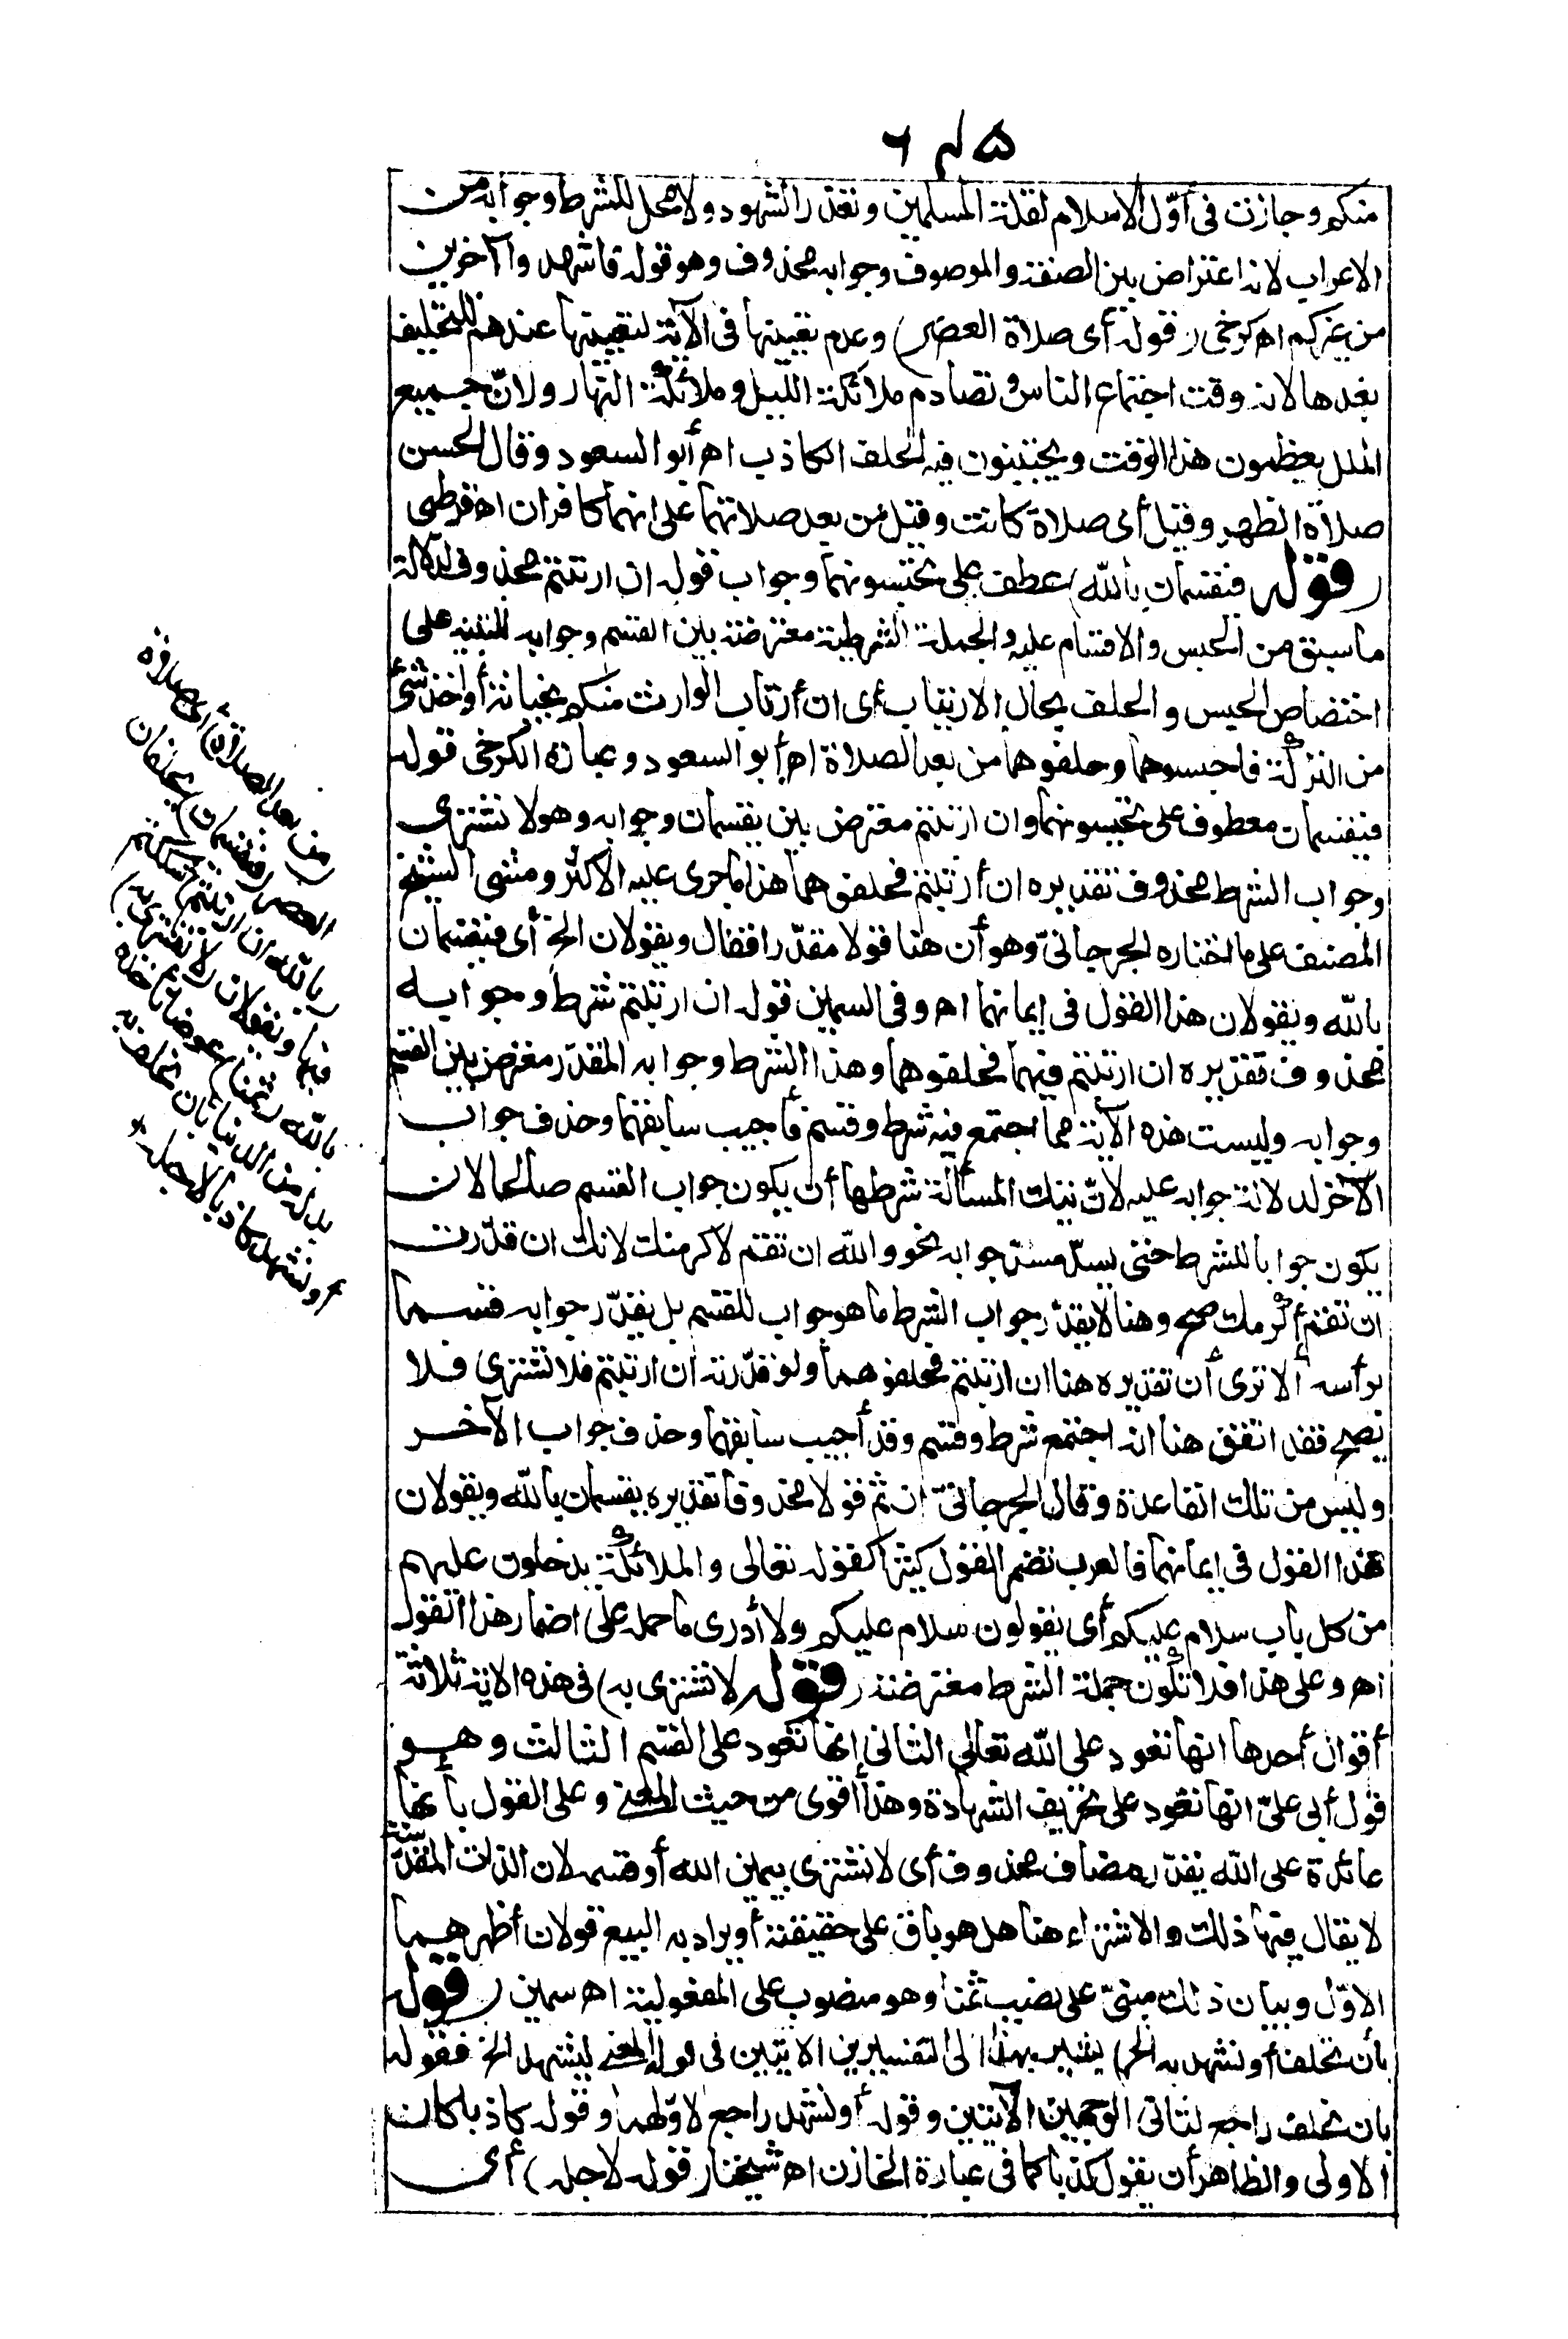 ٥٤٦
منكم وجازت فى أوّل الاسلام لقلة المسلمين وتعذر الشهود ولا محل للشرط وجوابه من
الاعراب لانه اعتراض بين الصفة والموصوف وجوابه محذوف وهو قوله فاشهدوا آخرين
من غيركم اه كرخى (قوله أى صلاة العصر) وعدم تعيينها فى الآية لتعيينها عندهم للتحليف
بعدها لانه وقت اجتماع الناس وتصادم ملائكة الليل وملائكة النهار ولانّ جميع
الملل يعظمون هذا الوقت ويجتنبون فيه الحلف الكاذب اه أبو السعود وقال الحسن
صلاة الظهر وقيل أى صلاة كانت وقيل من بعد صلاتهما على انهما كافران اه قرطبى
(قوله فيقسمان بالله) عطف على تحبسونهما وجواب قوله ان ارتبتم محذوف لدلالة
ما سبق من الحبس والاقسام عليه والجملة الشرطية معترضة بين القسم وجوابه للتنبيه على
اختصاص الحبس والحلف بحال الارتياب أى ان أرتاب الوارث منكم بخيانة أو اخذ شئ
من التركة فاحبسوهما وحلفوهما من بعد الصلاة اه أبو السعود وعبارة الكرخى قوله
فيقسمان معطوف على تحبسونهما وان ارتبتم معترض بين يقسمان وجوابه وهو لا نشترى
وجواب الشرط محذوف تقديره ان أرتبتم فحلفوهما هذا ما جرى عليه الاكثر ومشى الشيخ
المصنف على ما اختاره الجرجانىّ وهو أن هنا قولا مقدّرا فقال ويقولان الخ أى فيقسمان
بالله ويقولان هذا القول فى إيمانهما اه وفى السمين قوله ان ارتبتم شرط وجوابه
محذوف تقديره ان ارتبتم فيهما فحلفوهما وهذا الشرط وجوابه المقدّر معترض بين القسم
وجوابه وليست هذه الآية مما اجتمع فيه شرط وقسم فأجيب سابقهما وحذف جواب
الآخر لدلالة جوابه عليه لانّ تيك المسألة شرطها أن يكون جواب القسم صالحا لان
يكون جوابا للشرط حتى يسدّ مسدّ جوابه نحو والله ان تقم لاكرمنك لانك ان قدّرت
ان تقم أكرمك صح وهنا لا يقدّر جواب الشرط ما هو جواب للقسم بل يقدّر جوابه قسما
برأسه ألا ترى أن تقديره هنا ان ارتبتم فحلفوهما ولو قدّرته ان ارتبتم فلا نشترى فلا
يصح فقد اتفق هنا انه اجتمع شرط وقسم وقد أجيب سابقهما وحذف جواب الآخر
وليس من تلك القاعدة وقال الجرجانىّ ان ثم قولا محذوفا تقديره يقسمان بالله ويقولان
هذا القول فى إيمانهما فالعرب تضمر القول كثيرا كقوله تعالى والملائكة يدخلون عليهم
من كل باب سلام عليكم أى يقولون سلام عليكم ولا أدرى ما حمله على اضمار هذا القول
اه وعلى هذا فلا تكون جملة الشرط معترضة (قوله لا نشترى به) فى هذه الاية ثلاثة
أقوال أحدها انها تعود على الله تعالى الثانى إنها تعود على القسم الثالث وهو
قول أبى علىّ انها تعود على تحريف الشهادة وهذا أقوى من حيث المعنى وعلى القول بأنها
عائدة على الله يقدّر مضاف محذوف أى لا نشترى بيمين الله أو قسمه لان الذات المقدّسة
لا يقال فيها ذلك والاشتراء هنا هل هو باق على حقيقته أو يراد به البيع قولان أظهرهما
الاوّل وبيان ذلك مبنىّ على نصب ثمنا وهو منصوب على المفعولية اه سمين (قوله
بأن نحلف أو نشهد به الخ) يشير بهذا الى التفسيرين الاتيين فى قوله المعنى ليشهد الخ فقوله
بان نحلف راجع لثانى الوجهين الآتيين وقوله أو نشهد راجع لاوّلهما وقوله كاذبا كان
الاولى والظاهر أن يقول كذبا كما فى عبارة الخازن اه شيخنا (قوله لاجله) أى
(من بعد الصلاة) أى صلاة
العصر (فيقسمان) يحلفان
(بالله ان ارتبتم) شككتم
فيهما ويقولان (لا نشترى به)
بالله (ثمنا) عوضا نأخذه
بدله من الدنيا بأن نحلف به
أو نشهد كاذبا لاجله